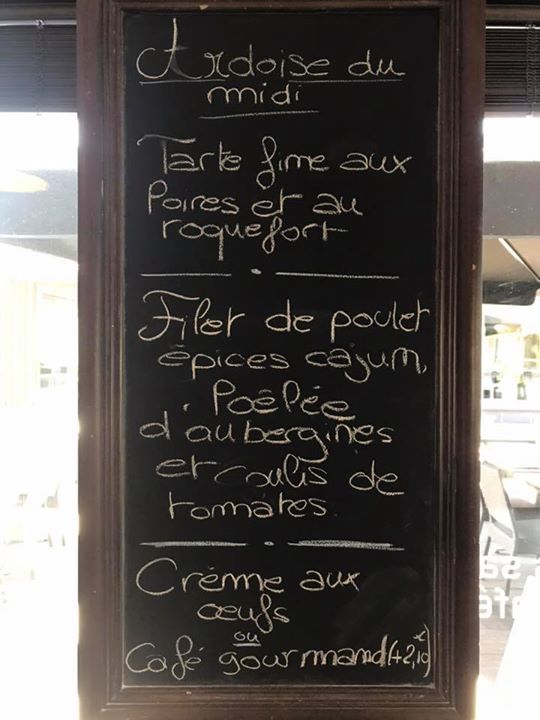 Ardoise du
midi
Tarte fine aux
Poires et au
roquefort
Filet de poulet
épices cajun,
Poêlée
d'aubergines
et coulis de
tomates.
Crème aux
œufs
ou
Café gourmand (+2,10€)